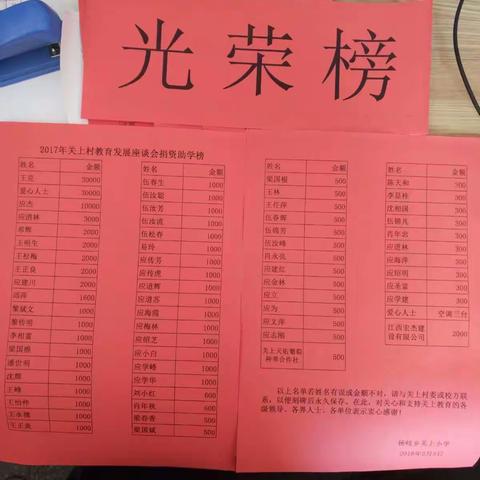 光荣榜
2017年关上村教育发展座谈会捐资助学榜
姓名 金额
王亮 30000
爱心人士 30000
应杰 10000
应清林 3000
2000
王明生 2000
王松梅 2000
王正良 2000
应建川 2000
1600
黎斌文 1000
黎传明 1000
李相富 1000
梁国根 1000
潘世明 1000
沈辉 1000
王峰 1000
王怡祥 1000
王永穗 1000
王正炎 1000
姓名 金额
伍春生 1000
伍汝聪 1000
伍汝芳 1000
伍汝流 1000
伍松春 1000
易玲 1000
应传芳 1000
应传虎 1000
应道辉 1000
应道苏 1000
应海霞 1000
应梅林 1000
应绍芝 1000
应小白 1000
应学峰 1000
应学华 1000
刘小红 600
肖年秋 600
梁春香 500
梁国斌 500
姓名 金额
梁国根 500
王林 500
王任萍 500
伍春辉 500
伍瑞芳 500
伍汝峰 500
肖永弘 500
应建红 500
应金林 500
应立 500
应为 500
应文萍 500
应志刚 500
关上天佑葡萄
种养合作社 500
姓名 金额
陈天和 300
李显桂 300
沈相国 300
伍锦凡 300
肖年忠 300
应道林 300
应海萍 300
应绍明 300
应圣富 300
应学建 300
爱心人士 空调三台
江西宏杰建
设有限公司 2000
以上名单若姓名有误或金额不对，请与关上村委或校方联
系，以便刻碑后永久保存。在此，对关心和支持关上教育的各
级领导、各界人士、各单位表示衷心感谢！
杨岐乡关上小学